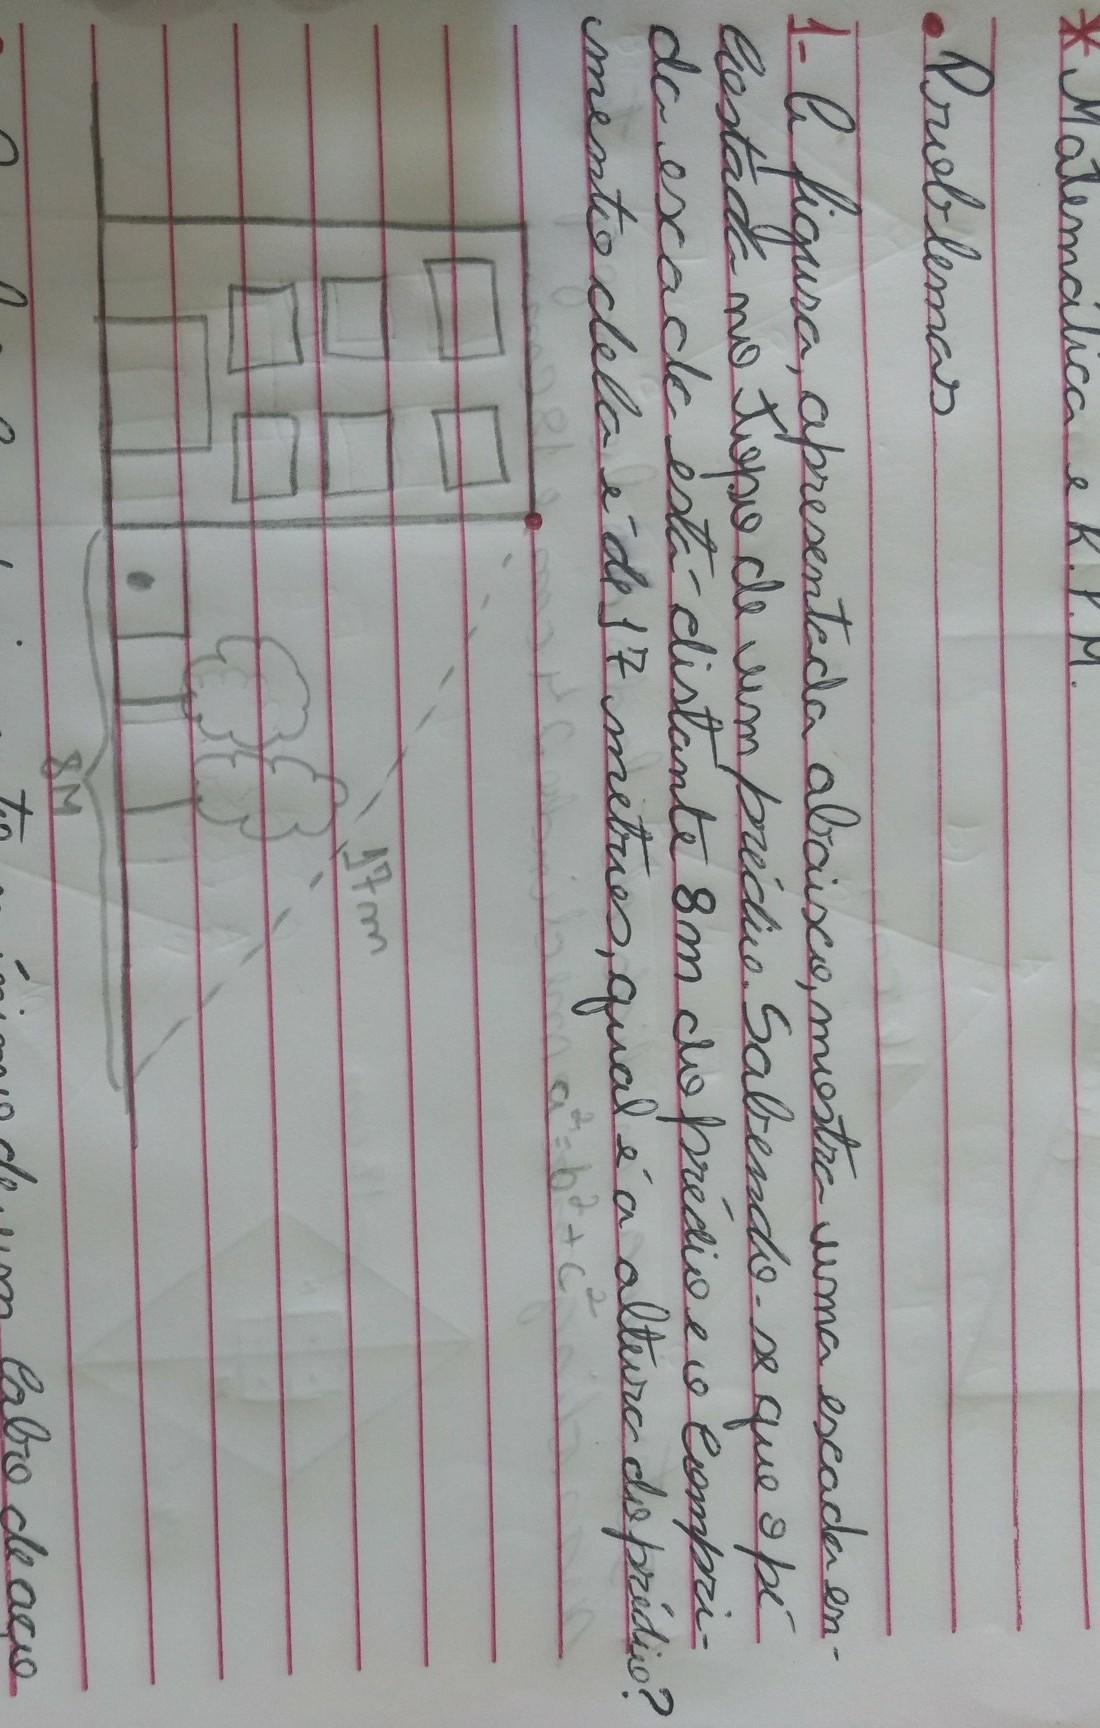 * Matemática e R.P.M.
• Problemas
1- A figura, apresentada abaixo, mostra uma escada en-
costada no topo de um prédio. Sabendo-se que o pé
da escada está distante 8m do prédio e o compri-
mento dela é de 17 metros, qual é a altura do prédio?
a² = b² + c²
17m
8M
de um cabo de aço